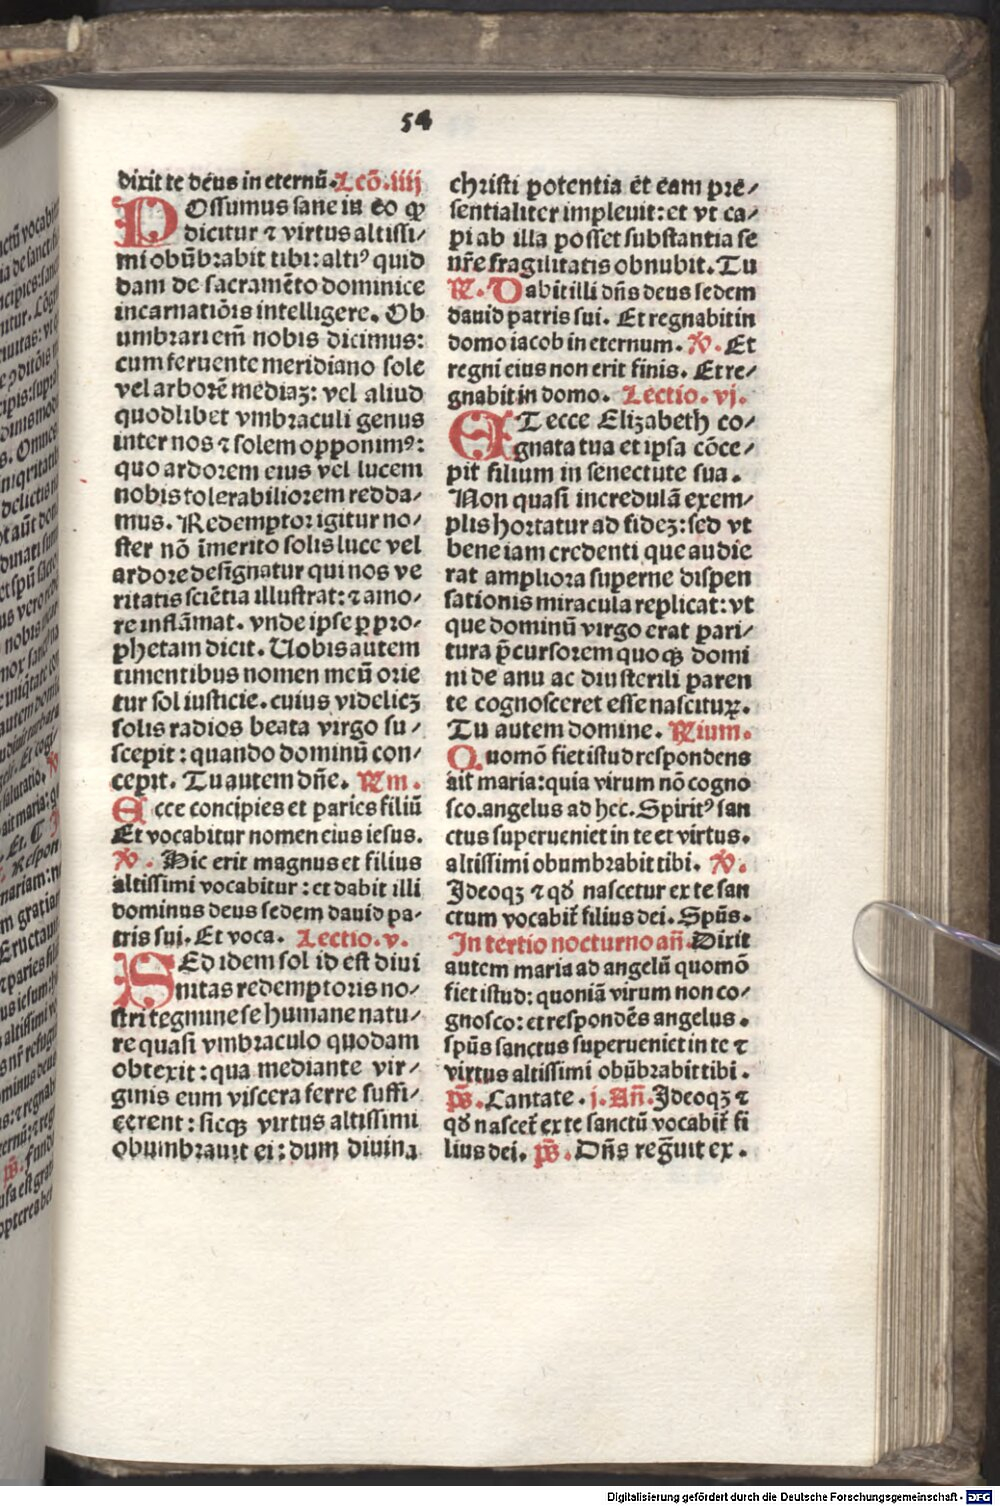 54
dixit te deus in eternū. Lcō. iiij
POssumus sane in eo ꝙ
dicitur ⁊ virtus altissi⸗
mi obūbrabit tibi: altiꝰ quid
dam de sacramēto dominice
incarnatiōis intelligere. Ob
umbrari em̄ nobis dicimus:
cum feruente meridiano sole
vel arborē mediaꝫ: vel aliud
quodlibet vmbraculi genus
inter nos ⁊ solem opponimꝰ:
quo ardorem eius vel lucem
nobis tolerabiliorem redda⸗
mus. Redemptor igitur no⸗
ster nō īmerito solis luce vel
ardore designatur qui nos ve
ritatis sciētia illustrat: ⁊ amo⸗
re inflāmat. vnde ipse ꝑ pro⸗
phetam dicit. Uobis autem
timentibus nomen meū orie
tur sol iusticie. cuius videlicꝫ
solis radios beata virgo su⸗
scepit: quando dominū con⸗
cepit. Tu autem dn̄e. Rm.
Ecce concipies et paries filiū
Et vocabitur nomen eius iesus.
℣. Hic erit magnus et filius
altissimi vocabitur: et dabit illi
dominus deus sedem dauid pa⸗
tris sui. Et voca. Lectio. v.
SEd idem sol id est diui
nitas redemptoris no⸗
stri tegmine se humane natu⸗
re quasi vmbraculo quodam
obtexit: qua mediante vir⸗
ginis eum viscera ferre suffi⸗
cerent: sicqꝫ virtus altissimi
obumbrauit ei: dum diuina
christi potentia et eam pre⸗
sentialiter impleuit: et vt ca⸗
pi ab illa posset substantia se
nr̄e fragilitatis obnubit. Tu
℟. Dabit illi dn̄s deus sedem
dauid patris sui. Et regnabit in
domo iacob in eternum. ℣. Et
regni eius non erit finis. Et re⸗
gnabit in domo. Lectio. vj.
ET ecce Elizabeth co⸗
gnata tua et ipsa cōce⸗
pit filium in senectute sua.
Non quasi incredulā exem⸗
plis hortatur ad fideꝫ: sed vt
bene iam credenti que audie
rat ampliora superne dispen
sationis miracula replicat: vt
que dominū virgo erat pari⸗
tura p̄cursorem quoqꝫ domi
ni de anu ac diu sterili paren
te cognosceret esse nasciturꝝ.
Tu autem domine. Rium.
Quomō fiet istud respondens
ait maria: quia virum nō cogno
sco. angelus ad hec. Spiritꝰ san
ctus superueniet in te et virtus.
altissimi obumbrabit tibi. ℣.
Ideoqꝫ ⁊ qđ nascetur ex te san
ctum vocabit̄ filius dei. Spūs.
In tertio nocturno an̄. Dixit
autem maria ad angelū quomō
fiet istud: quoniā virum non co⸗
gnosco: et respondēs angelus.
spūs sanctus superueniet in te ⁊
virtus altissimi obūbrabit tibi.
p̄s. Cantate. j. An̄. Ideoqꝫ ⁊
qđ nascet̄ ex te sanctū vocabit̄ fi
lius dei. p̄s. Dn̄s regn̄uit ex.
Digitalisierung gefördert durch die Deutsche Forschungsgemeinschaft - DFG